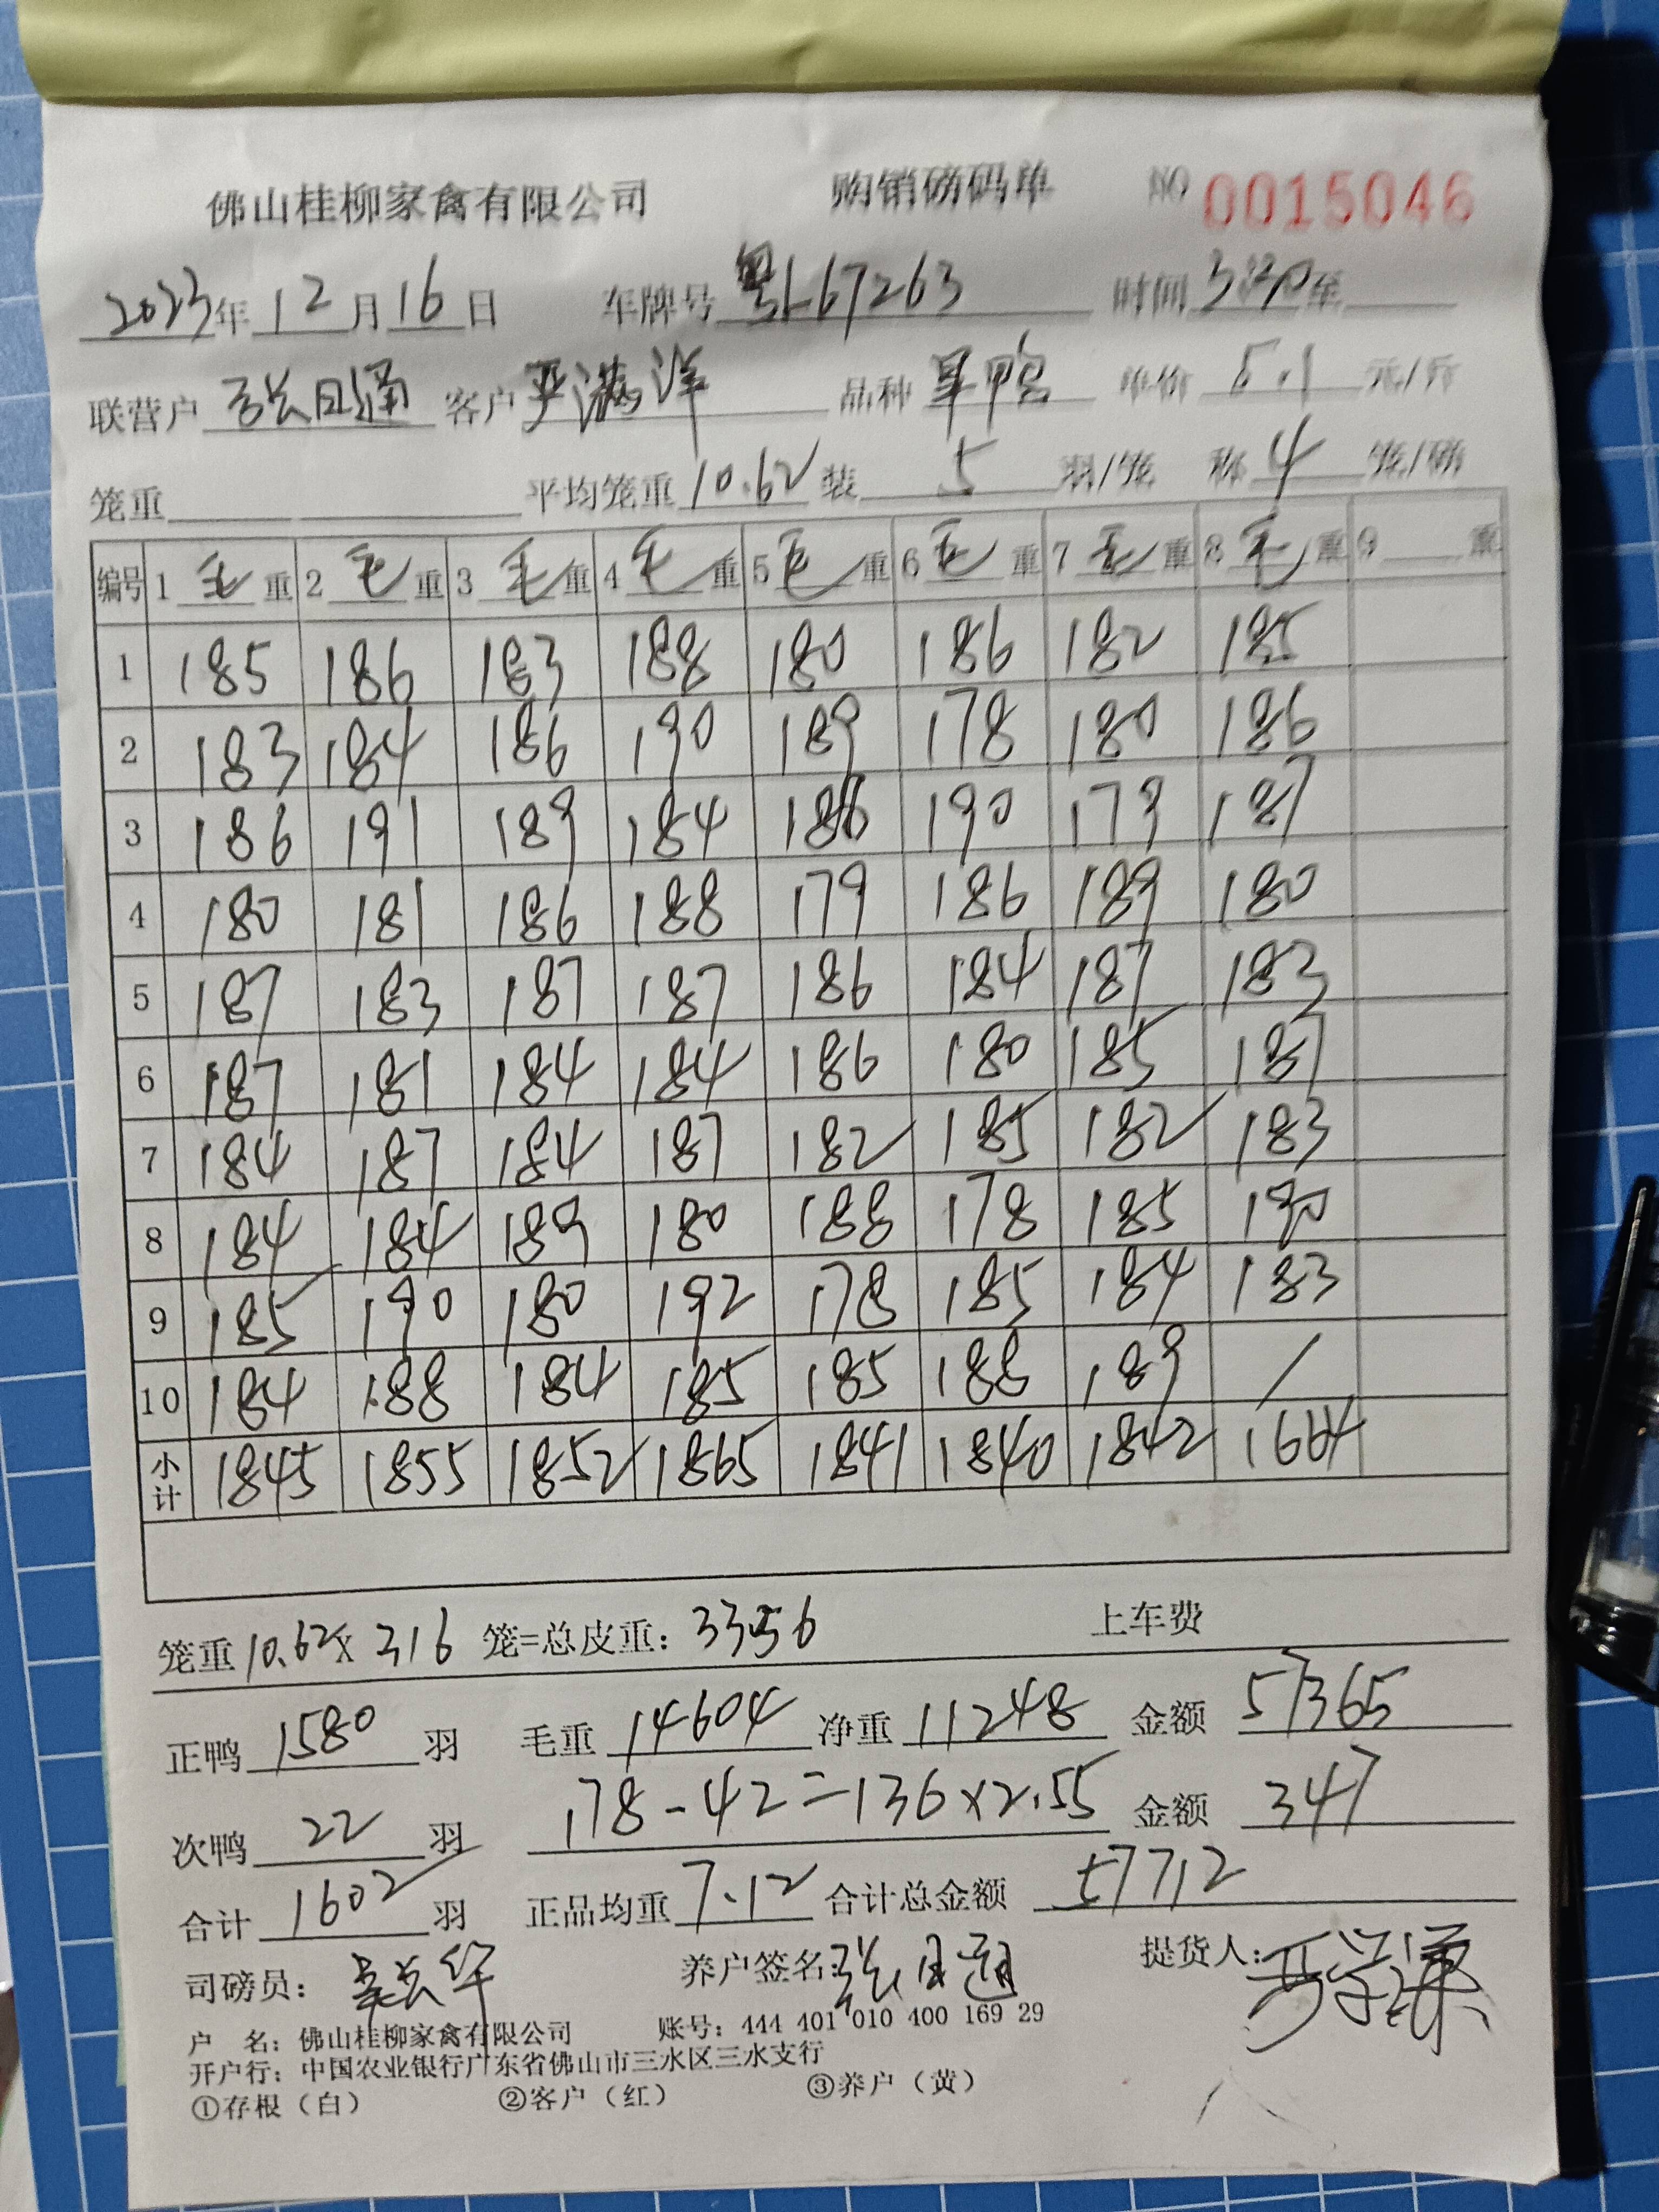 佛山桂柳家禽有限公司 购销磅码单 NO 0015046
2023年12月16日 车牌号 粤L67263 时间 至
联营户 张日通 客户 严满洋 品种 单价 5.1 元/斤
笼重 平均笼重 10.62 装 5 羽/笼 称 4 笼/磅
编号 1 毛 重 2 毛 重 3 毛 重 4 毛 重 5 毛 重 6 毛 重 7 毛 重 8 毛 重 9 重
1 185 186 183 188 180 186 182 185
2 183 184 186 190 189 178 180 186
3 186 191 189 184 186 190 179 187
4 180 181 186 188 179 186 189 180
5 187 183 187 187 186 184 187 183
6 187 181 184 184 186 180 185 187
7 184 187 184 187 182 185 182 183
8 184 184 189 180 188 178 185 190
9 185 190 180 192 178 185 184 183
10 184 188 184 185 185 188 189 /
小计 1845 1855 1852 1865 1841 1840 1842 1664
笼重 10.62 X 316 笼=总皮重: 3356 上车费
正鸭 1580 羽 毛重 14604 净重 11248 金额 57365
次鸭 22 羽 178-42=136×2.55 金额 347
合计 1602 羽 正品均重 7.12 合计总金额 57712
司磅员: 养户签名: 张日通 提货人:
户 名: 佛山桂柳家禽有限公司 账号: 444 401 010 400 169 29
开户行: 中国农业银行广东省佛山市三水区三水支行
①存根（白） ②客户（红） ③养户（黄）